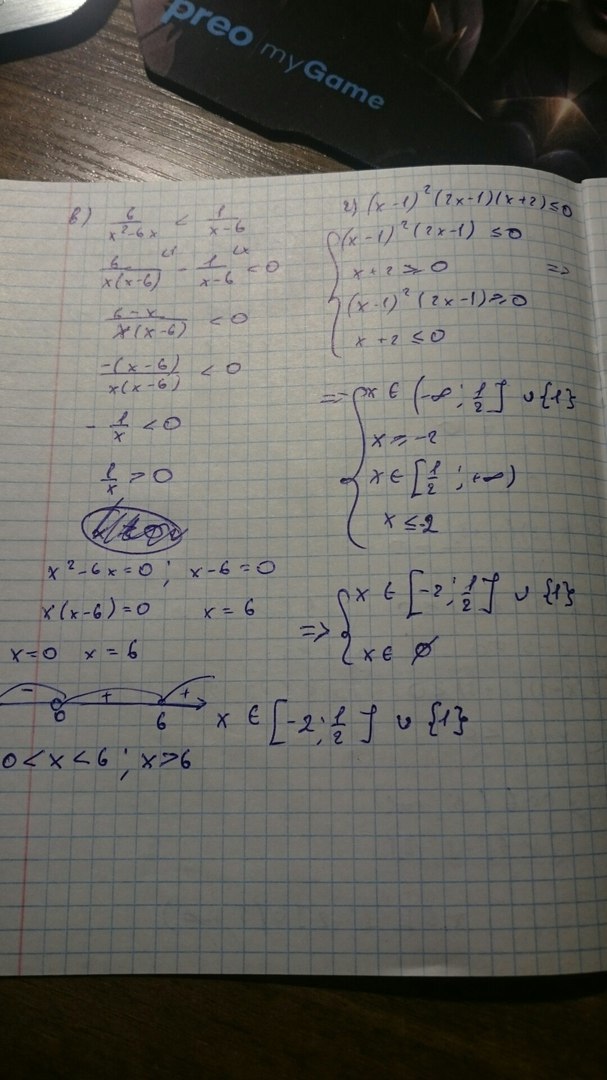 preo myGame
в) 6/(x²-6x) < 1/(x-6)
6/(x(x-6)) - 1/(x-6) < 0
(6-x)/(x(x-6)) < 0
-(x-6)/(x(x-6)) < 0
- 1/x < 0
1/x > 0
x²-6x=0 ; x-6=0
x(x-6)=0 x=6
x=0 x=6
- + +
0 6
0<x<6 ; x>6
г) (x-1)²(2x-1)(x+2)≤0
(x-1)²(2x-1) ≤0
x+2 ≥ 0 =>
(x-1)²(2x-1)≥0
x+2 ≤ 0
=> x ∈ (-∞ ; 1/2] ∪ {1}
x ≥ -2
x ∈ [1/2 ; +∞)
x ≤ -2
=> x ∈ [-2 ; 1/2] ∪ {1}
x ∈ ∅
x ∈ [-2 ; 1/2] ∪ {1}